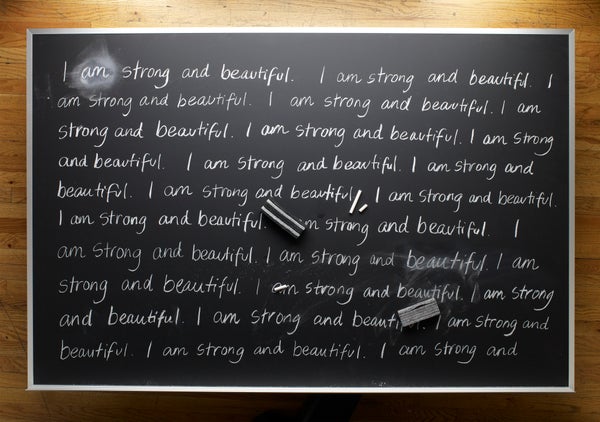 I am strong and beautiful. I am strong and beautiful. I
am strong and beautiful. I am strong and beautiful. I am
strong and beautiful. I am strong and beautiful. I am strong
and beautiful. I am strong and beautiful. I am strong and
beautiful. I am strong and beautiful. I am strong and beautiful.
I am strong and beautiful. am strong and beautiful. I
am strong and beautiful. I am strong and beautiful. I am
strong and beautiful. I am strong and beautiful. I am strong
and beautiful. I am strong and beauti I am strong and
beautiful. I am strong and beautiful. I am strong and